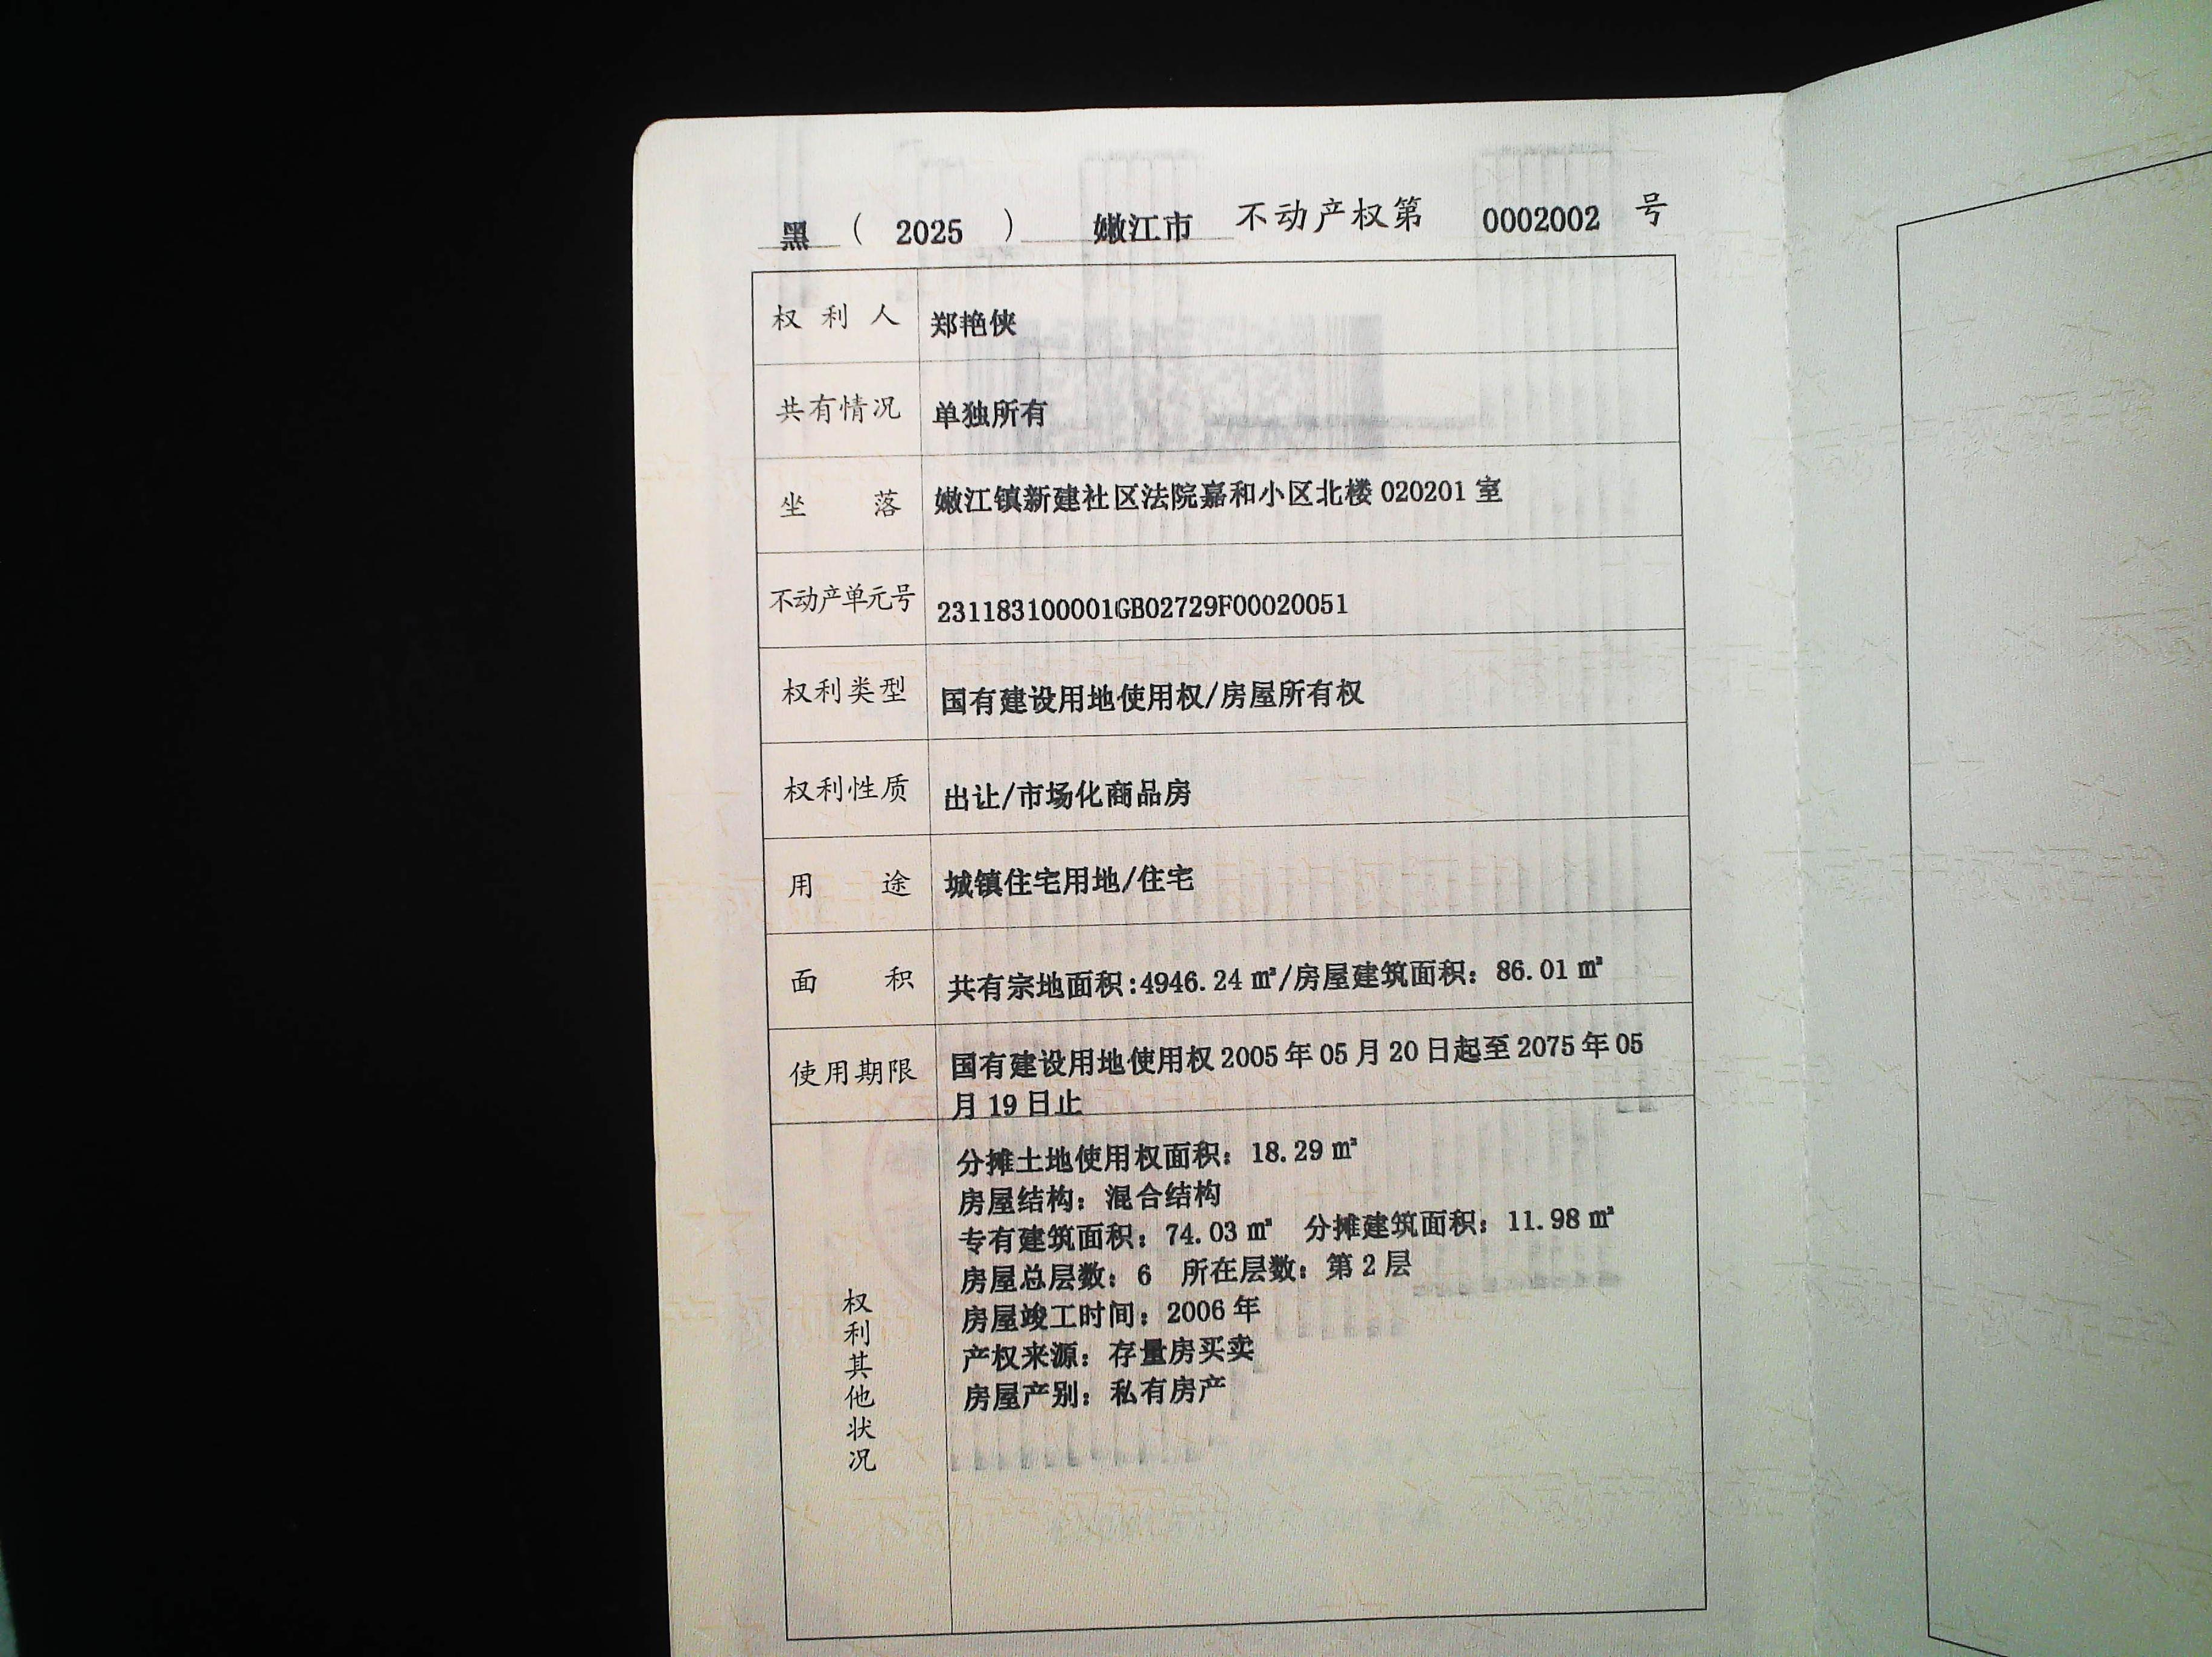 黑 ( 2025 ) 嫩江市 不动产权第 0002002 号
权利人 郑艳侠
共有情况 单独所有
坐落 嫩江镇新建社区法院嘉和小区北楼 020201 室
不动产单元号 231183100001GB02729F00020051
权利类型 国有建设用地使用权/房屋所有权
权利性质 出让/市场化商品房
用途 城镇住宅用地/住宅
面积 共有宗地面积:4946.24 ㎡/房屋建筑面积：86.01 ㎡
使用期限 国有建设用地使用权 2005 年 05 月 20 日起至 2075 年 05
月 19 日止
权利其他状况
分摊土地使用权面积：18.29 ㎡
房屋结构：混合结构
专有建筑面积：74.03 ㎡ 分摊建筑面积：11.98 ㎡
房屋总层数：6 所在层数：第 2 层
房屋竣工时间：2006 年
产权来源：存量房买卖
房屋产别：私有房产